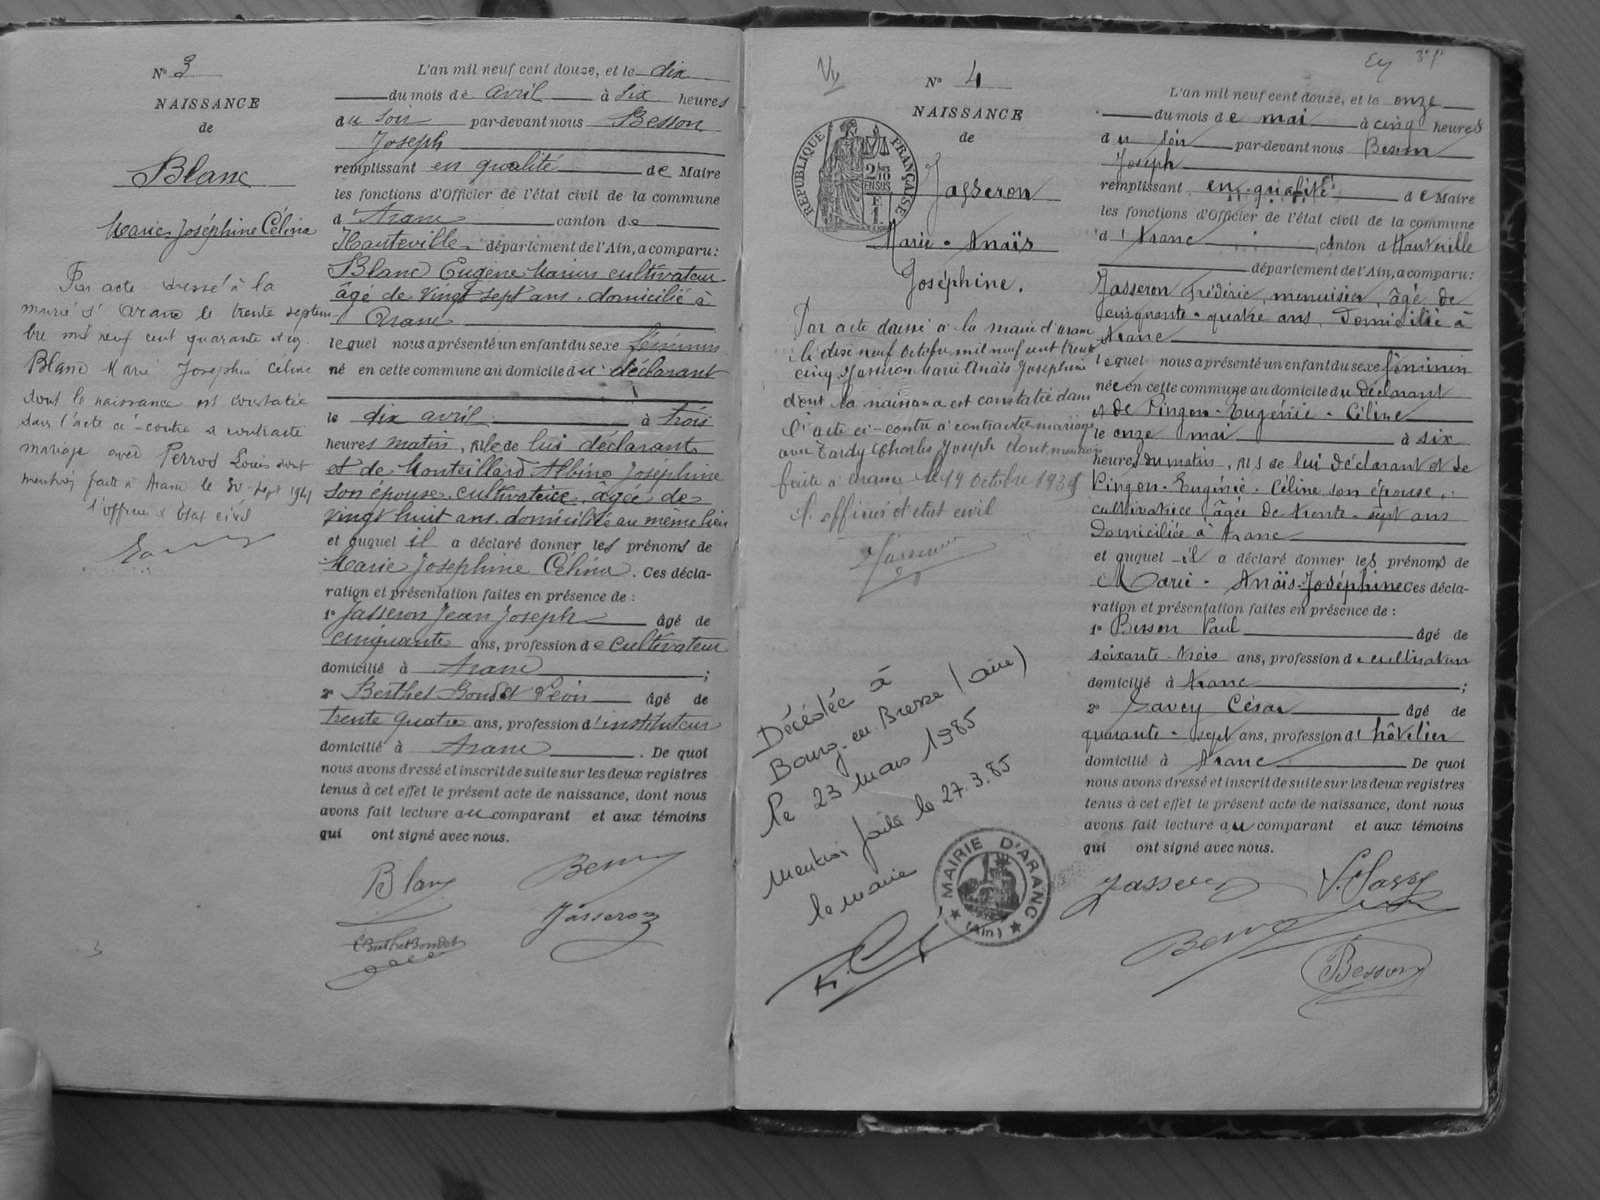 N° 3
NAISSANCE
de
Blanc
Marie Joséphine Célina
Par acte dressé à la
mairie d'Aranc le trente septem
bre mil neuf cent quarante et un
Blanc Marie Joséphine Célina
dont la naissance est constatée
dans l'acte ci-contre a contracté
mariage avec Perrod Louis dont
mention faite à Aranc le 30 Sept 1941
l'officier d'Etat civil
L'an mil neuf cent douze, et le dix
du mois de avril à six heures
du soir par-devant nous Besson
Joseph
remplissant en qualité de Maire
les fonctions d'Officier de l'état civil de la commune
d'Aranc canton de
Hauteville département de l'Ain, a comparu:
Blanc Eugène Marius cultivateur
âgé de vingt sept ans, domicilié à
Aranc
lequel nous a présenté un enfant du sexe féminin
né en cette commune au domicile du déclarant
le dix avril à trois
heures matin, fille de lui déclarant
et de Monteillard Albine Joséphine
son épouse cultivatrice, âgée de
vingt huit ans, domiciliée au même lieu
et auquel il a déclaré donner les prénoms de
Marie Joséphine Célina. Ces décla-
ration et présentation faites en présence de :
1° Jasseron Jean Joseph âgé de
cinquante ans, profession de cultivateur
domicilié à Aranc ;
2° Berthet Bondet Léon âgé de
trente quatre ans, profession d'instituteur
domicilié à Aranc . De quoi
nous avons dressé et inscrit de suite sur les deux registres
tenus à cet effet le présent acte de naissance, dont nous
avons fait lecture au comparant et aux témoins
qui ont signé avec nous.
Blanc
Besson
Jasseron
LBerthetBondet
3
N° 4
NAISSANCE
de
RÉPUBLIQUE FRANÇAISE
2/10 EN SUS
Jasseron
Marie-Anaïs
Joséphine.
Par acte dressé à la mairie d'Aranc
le dix neuf Octobre mil neuf cent trente
cinq Jasseron Marie Anaïs Joséphine
dont la naissance est constatée dans
l'acte ci-contre a contracté mariage
avec Tardy Charles Joseph dont mention
faite à Aranc le 19 Octobre 1935
l'officier d'état civil
Jasseron
Décédée à
Bourg-en-Bresse (Ain)
le 23 mars 1985
Mention faite le 27.3.85
le Maire
MAIRIE D'ARANC
(Ain)
L'an mil neuf cent douze, et le onze
du mois de mai à cinq heures
du soir par-devant nous Besson
Joseph
remplissant en qualité de Maire
les fonctions d'Officier de l'état civil de la commune
d'Aranc canton d'Hauteville
département de l'Ain, a comparu:
Jasseron Frédéric, menuisier, âgé de
cinquante-quatre ans, domicilié à
Aranc
lequel nous a présenté un enfant du sexe féminin
née en cette commune au domicile du déclarant
et de Pingon-Eugénie-Céline
le onze mai à six
heures du matin, fils de lui déclarant et de
Pingon-Eugénie-Céline son épouse,
cultivatrice âgée de trente-sept ans
domiciliée à Aranc
et auquel il a déclaré donner les prénoms de
Marie-Anaïs-Joséphine Ces décla-
ration et présentation faites en présence de :
1° Besson Paul âgé de
soixante-trois ans, profession de cultivateur
domicilié à Aranc ;
2° Savey César âgé de
quarante-sept ans, profession d'hôtelier
domicilié à Aranc De quoi
nous avons dressé et inscrit de suite sur les deux registres
tenus à cet effet le présent acte de naissance, dont nous
avons fait lecture au comparant et aux témoins
qui ont signé avec nous.
Jasseron
Besson
Besson